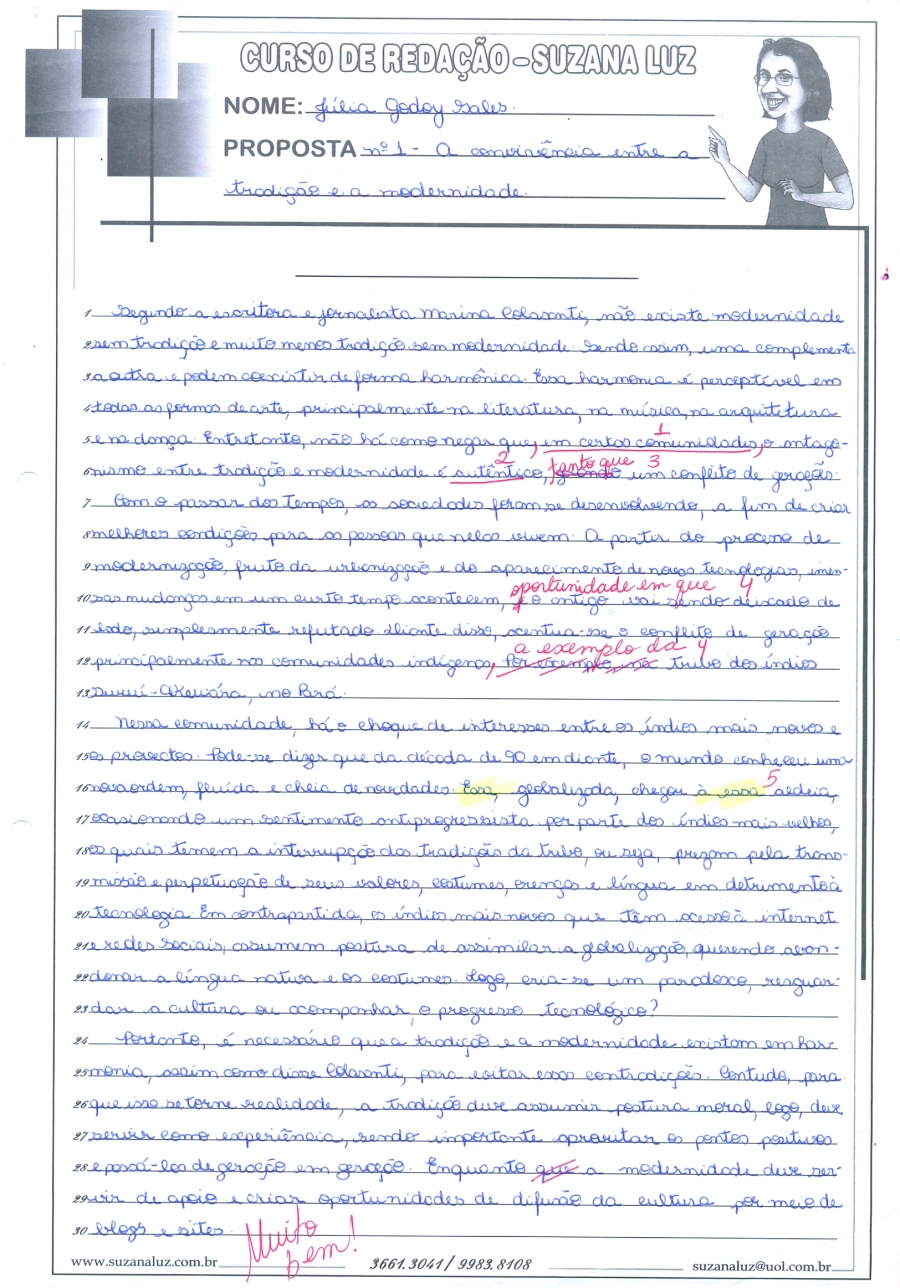 CURSO DE REDAÇÃO - SUZANA LUZ
NOME: Júlia Godoy Sales.
PROPOSTA nº 1 - A convivência entre a
tradição e a modernidade.
1 Segundo a escritora e jornalista Marina Colasanti, não existe modernidade
2 sem tradição e muito menos tradição sem modernidade. Sendo assim, uma complementa
3 a outra e podem coexistir de forma harmônica. Essa harmonia é perceptível em
4 todas as formas de arte, principalmente na literatura, na música, na arquitetura
1
5 e na dança. Entretanto, não há como negar que, em certas comunidades, o antago-
2 tanto que 3
6 nismo entre tradição e modernidade é autêntico, gerando um conflito de gerações.
7 Com o passar dos tempos, as sociedades foram se desenvolvendo, a fim de criar
8 melhores condições para as pessoas que nelas vivem. A partir do processo de
9 modernização, fruto da urbanização e do aparecimento de novas tecnologias, imen-
oportunidade em que 4
10 sas mudanças em um curto tempo acontecem, e o antigo vai sendo deixado de
11 lado, simplesmente refutado. Diante disso, acentua-se o conflito de geração
a exemplo da 4
12 principalmente nas comunidades indígenas, por exemplo, na tribo dos índios
13 Suruí-Aikewára, no Pará.
14 Nessa comunidade, há o choque de interesses entre os índios mais novos e
15 os provectos. Pode-se dizer que da década de 90 em diante, o mundo conheceu uma
5
16 nova ordem, fluída e cheia de novidades. Essa, globalizada, chegou à essa aedeia,
17 ocasionando um sentimento antiprogressista por parte dos índios mais velhos,
18 os quais temem a interrupção das tradições da tribo, ou seja, prezam pela trans-
19 missão e perpetuação de seus valores, costumes, crenças e língua em detrimento à
20 tecnologia. Em contrapartida, os índios mais novos que têm acesso à internet
21 e redes sociais, assumem postura de assimilar a globalização, querendo aban-
22 donar a língua nativa e os costumes. Logo, cria-se um paradoxo, resguar-
23 dar a cultura ou acompanhar o progresso tecnológico?
24 Portanto, é necessário que a tradição e a modernidade existam em har-
25 monia, assim como disse Colasanti, para evitar essas contradições. Contudo, para
26 que isso se torne realidade, a tradição deve assumir postura moral, logo, deve
27 servir como experiência, sendo importante aproveitar os pontos positivos
28 e passá-los de geração em geração. Enquanto que a modernidade deve ser-
29 vir de apoio e criar oportunidades de difusão da cultura por meio de
30 blogs e sites.
Muito
bem!
www.suzanaluz.com.br 3661.3041 / 9983.8108 suzanaluz@uol.com.br